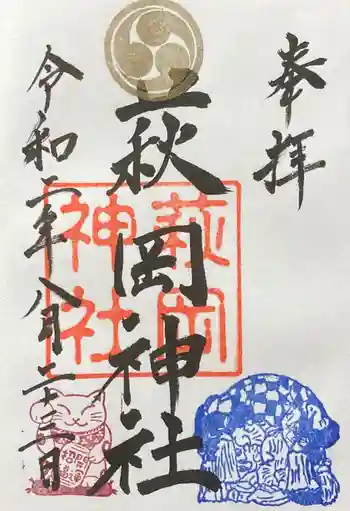 奉拝
萩岡神社
令和二年八月二十二日
萩岡
神社
開運
招福